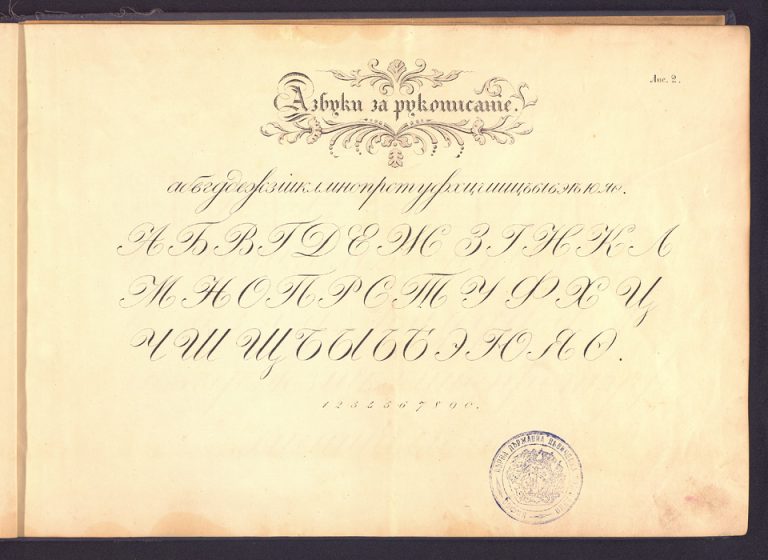 Лис. 2.
Азбуки за рукописаніе.
абвгдежзіиклмнопрстуфхцчшщъыьѣэюяѳ.
А Б В Г Д Е Ж З І И К Л
М Н О П Р С Т У Ф Х Ц
Ч Ш Щ Ъ Ы Ь Ѣ Э Ю Я Ѳ.
1 2 3 4 5 6 7 8 9 0.
ДЪРЖАВНА